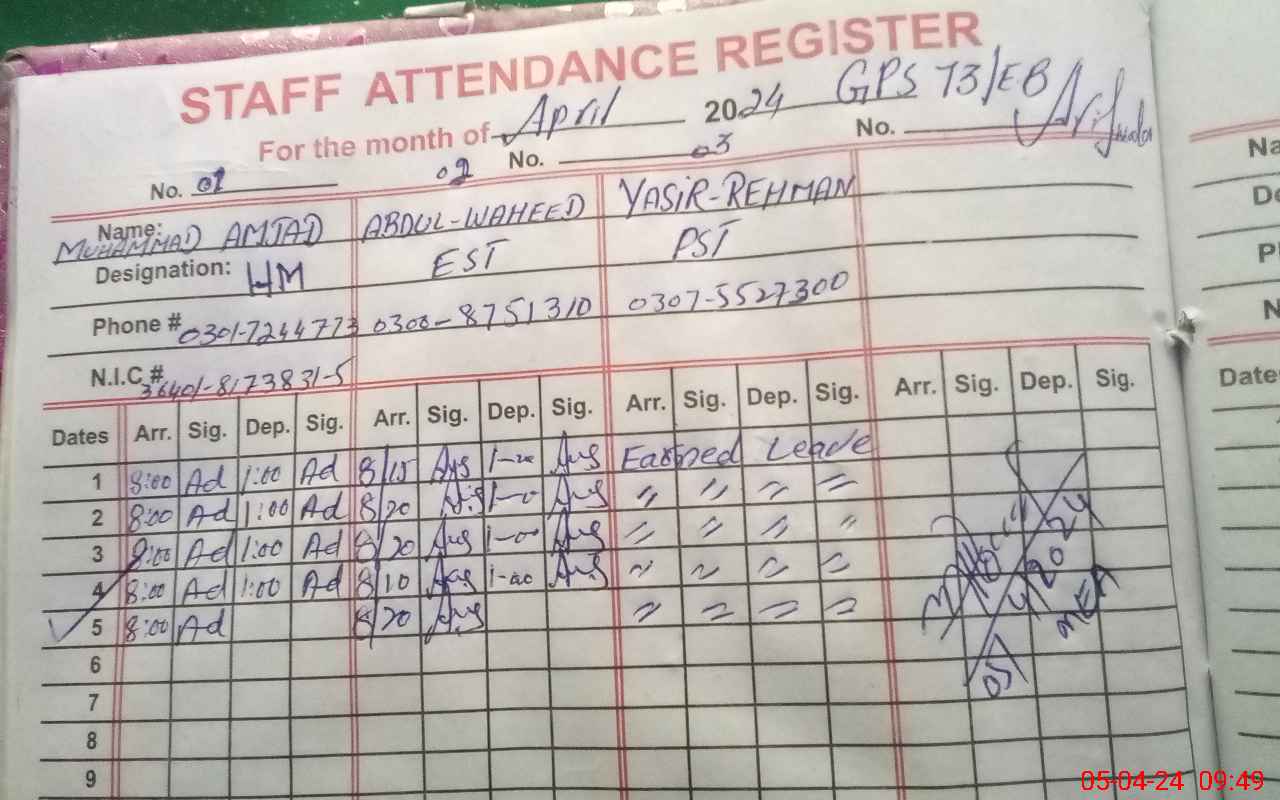 STAFF ATTENDANCE REGISTER
For the month of April 2024 GPS 73/EB
No. 01 02 No. 03 No.
Name: MUHAMMAD AMJAD ABDUL-WAHEED YASIR-REHMAN Na
Designation: HM EST PST De
Phone # 0301-7244773 0300-8751310 0307-5527300 P
N.I.C.# 36401-8173831-5 N
Dates Arr. Sig. Dep. Sig. Arr. Sig. Dep. Sig. Arr. Sig. Dep. Sig. Arr. Sig. Dep. Sig. Date
1 8:00 Ad 1:00 Ad 8/15 1-00 Earned Leave
2 8:00 Ad 1:00 Ad 8/20 1-0 〃 〃 〃 〃
3 8:00 Ad 1:00 Ad 8/20 1-00 〃 〃 〃 〃
4 8:00 Ad 1:00 Ad 8/10 1-00 〃 〃 〃 〃
5 8:00 Ad 8/20 〃 〃 〃 〃
6
7
8
9
05 4 2024
MEA
05-04-24 09:49